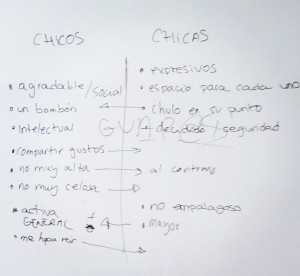 CHICOS CHICAS
• expresivos
• agradable/social • espacio para cada uno
• un bombón • chulo en su punto
• Intelectual • + decidido / seguridad
• compartir gustos
• no muy alta al contrario
• no muy celosa
• activa • no empalagoso
GENERAL • mayor
• me haga reir